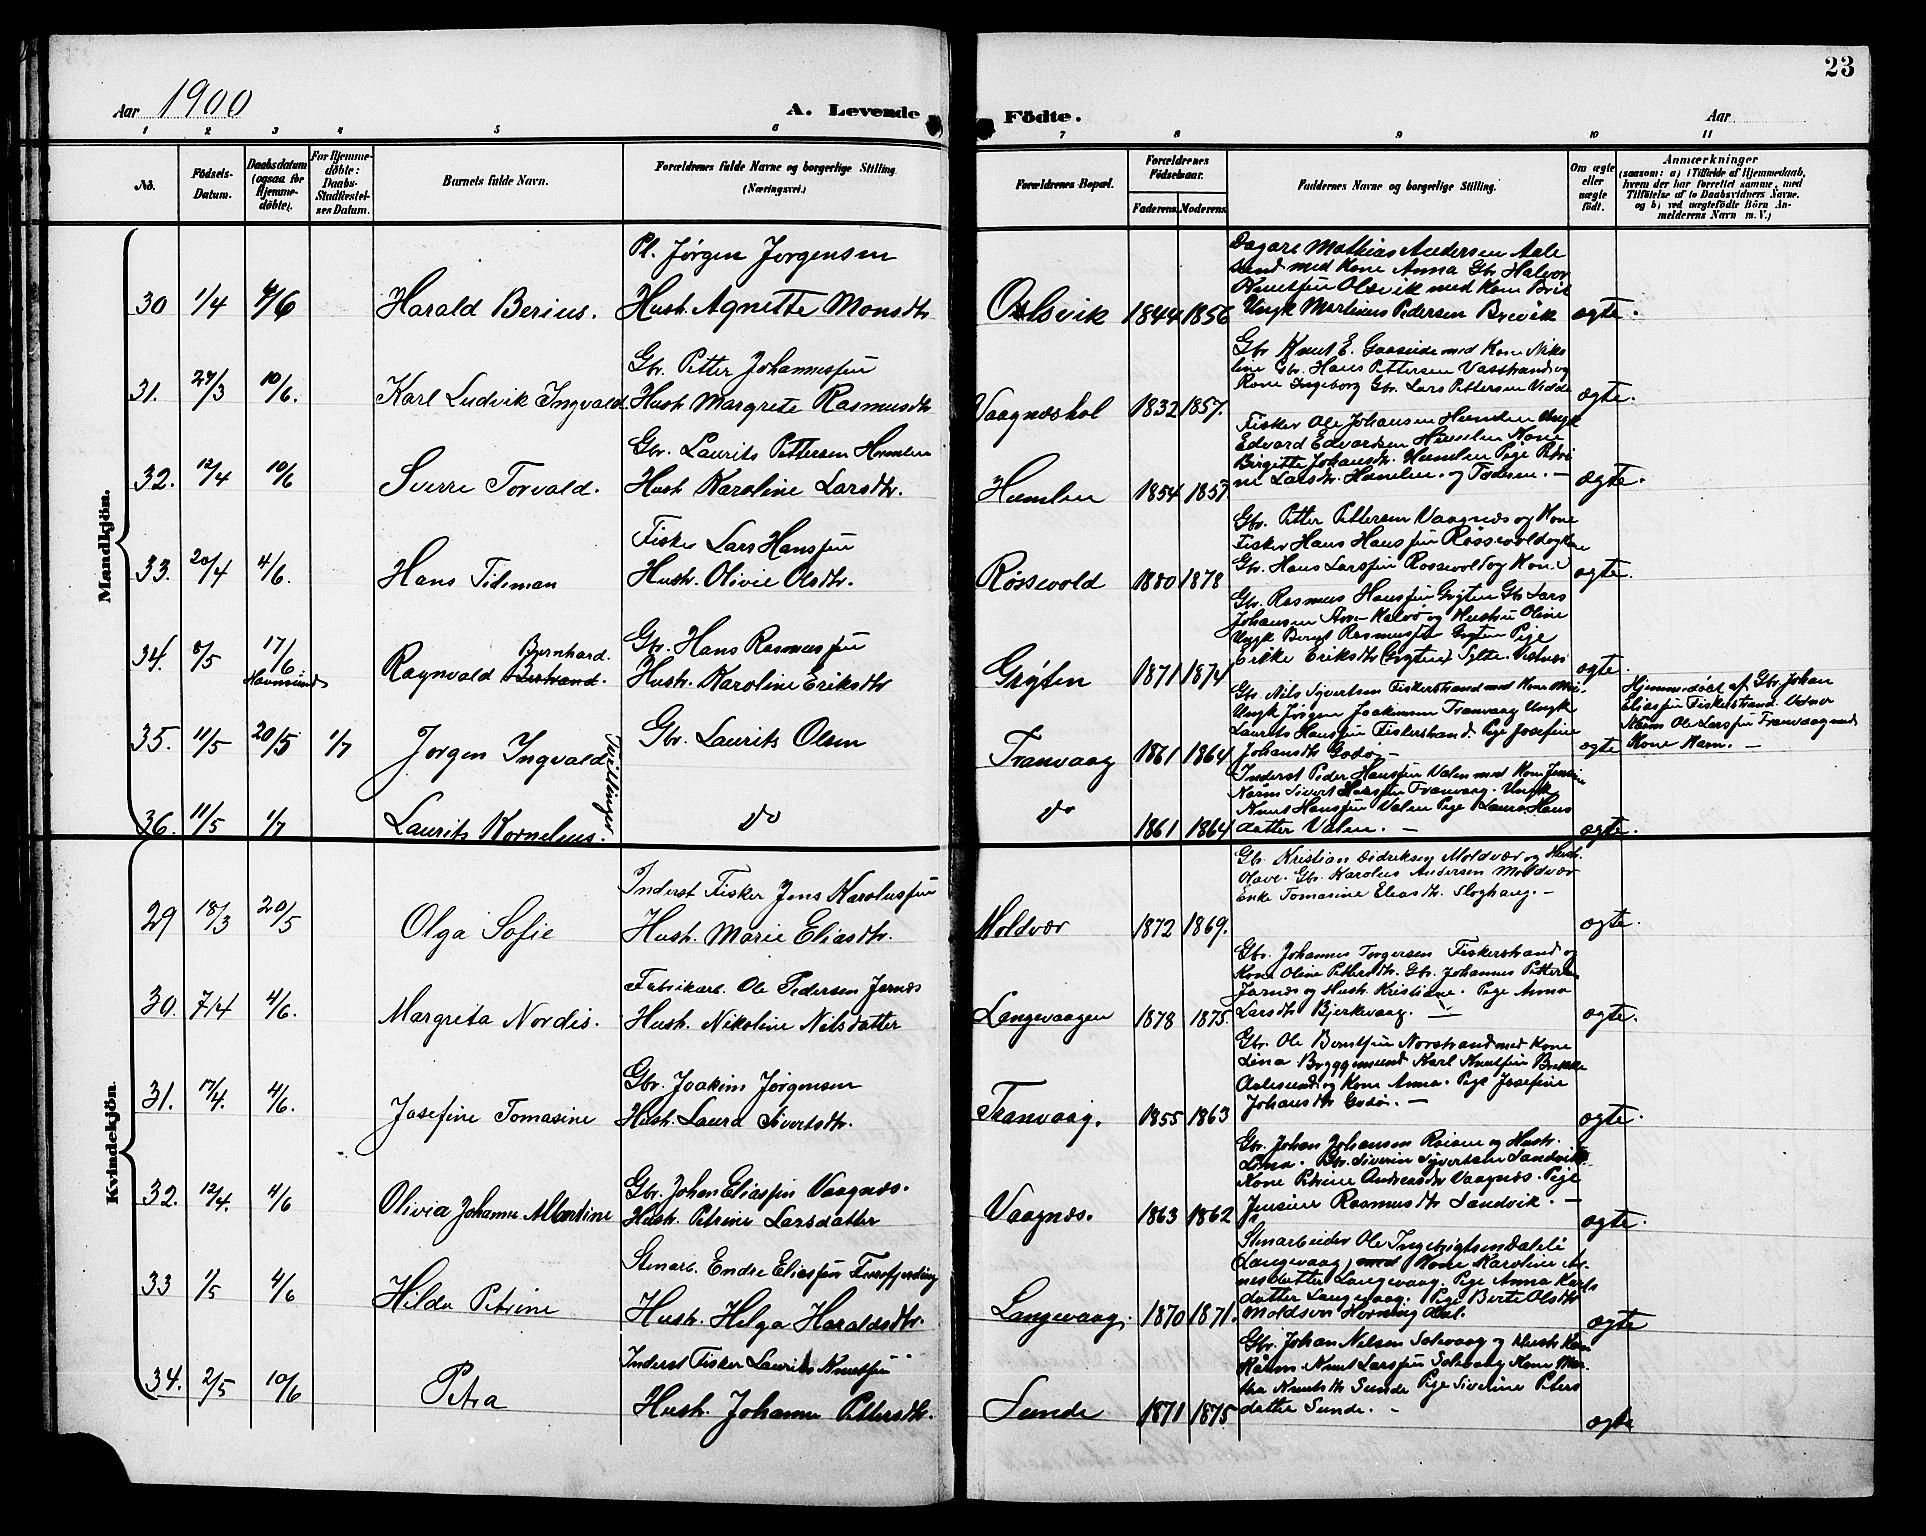 23
Aar 1900
A. Levende Födte.
Aar
1 2 3 4 5 6 7 8 9 10 11
No.
Födsels-
Datum.
Daabsdatum
(ogsaa for
Hjemme-
döbte).
For Hjemme-
döbte:
Daabs-
Stadfæstel-
ses Datum.
Barnets fulde Navn.
Forældrenes fulde Navne og borgerlige Stilling.
(Næringsvei.)
Forældrenes Bopæl.
Forældrenes
Födselsaar.
Faderens. Moderens.
Faddernes Navne og borgerlige Stilling.
Om ægte
eller
uægte
födt.
Anmærkninger
(saasom: a) i Tilfælde af Hjemmedaab,
hvem der har forrettet samme, med
Tilföielse af to Daabsvidners Navne,
og b) ved uægtefödte Börn An-
melderens Navn m. V.)
Mandkjön.
30 1/4 4/6 Harald Berius.
Pl. Jørgen Jørgensen
Hust. Agnette Monsdtr
Olsvik 1844 1856
Dagarb Mathias Andersen Aale
sund med Kone Anna Gbr Halvor
Knutsen Olsvik med Kone Brit
Ungk Martinus Pedersen Brevik
ægte.
31. 27/3 10/6. Karl Ludvik Ingvald.
Gbr. Petter Johannessen
Hust Margrete Rasmusdtr
Vaagneshol 1832 1857.
Gbr Knut E. Gaaseide med Kone Niko
line Gbr. Hans Pettersen Vasstrand og
Kone Ingeborg Gbr Lars Pettersen Vedde
ægte.
32. 12/4 10/6 Sverre Torvald.
Gbr. Laurits Pettersen Humlen
Hust Karoline Larsdtr.
Humlen 1854 1857
Fisker Ole Johansen Humlen Ungk
Edvard Edvardsen Humlen Kone
Birgitte Johansdtr. Humlen Pige Petri
ne Larsdtr. Humlen. og Faderen. —
ægte.
33. 20/4 4/6. Hans Tideman
Fisker Lars Hanssen
Hustr. Olivie Olsdtr.
Røssevold 1880 1878
Gbr. Petter Pettersen Vaagnæs og Kone
Fisker Hans Hanssen Røssevold og Kone
Gbr. Hans Larssen Røssevold og Kone.
ægte.
34. 8/5 17/6 Ragnvald Bertrand. Bernhard.
Gbr. Hans Rasmussen
Hustr. Karoline Eriksdtr
Grÿten 1871 1874
Gbr. Rasmus Hanssen Grÿten Gbr Lars
Johansen Kalvø og Hustru Oline
Ungk Bernt Rasmussen Grÿten Pige
Erikke Eriksdtr (Grÿten) Sylte. Vestnæs
ægte.
35. 11/5 20/5 1/7 Jørgen Ingvald
Tvillinger
Gbr. Laurits Olsen
Tranvaag 1861 1864
Gbr. Nils Syvertsen Fiskerstrand med Kone
Ungk Jørgen Joakimsen Tranvaag Ungk
Laurits Hanssen Fiskerstrand. Pige Josefine
Johansdtr Godø. —
ægte
Hjemmedøbt af Gbr. Johan
Eliassen Fiskerstrand. Vidner
Naam Ole Larssen Tranvaag med
Kone Karn. —
36. 11/5 1/7 Laurits Kornelius.
do
do 1861 1864
Inderst Peder Hanssen Valen med Kone Jensine
Naam Sivert Tranvaag. Ungk
Knut Hanssen Valen Pige Laura Hans
datter Valen. —
ægte.
Kvindekjön.
29 18/3 20/5 Olga Sofie
Inderst Fisker Jens Karolussen
Hust. Marie Eliasdtr.
Moldvær 1872 1869.
Gbr. Kristian Didriksen Moldvær og Hust.
Olave. Gbr. Karolus Andersen Moldvær
Enke Tomasine Eliasdtr. Sloghaug. —
ægte.
30. 7/4 4/6. Margreta Nordis.
Fabrikarb. Ole Pedersen Jarnæs
Hust. Nikoline Nilsdatter
Langevaagen 1878 1875.
Gbr. Johannes Torgersen Fiskerstrand og
Kone Oline Pettersdtr. Gbr. Johannes Pettersen
Jarnæs og Hust. Kristiane. Pige Anna
Larsdtr Bjerkevaag. —
ægte.
31. 17/4. 4/6. Josefine Tomasine
Gbr. Joakim Jørgensen
Hust. Laura Sivertsdtr.
Tranvaag. 1855 1863
Gbr. Ole Berntsen Norstrand med Kone
Lina Bryggemand Karl Knutsen Brekke
Aalesund og Kone Anna. Pige Josefine
Johansdtr Godø. —
ægte.
32. 12/4. 4/6 Olivia Johanne Albertine
Gbr. Johan Eliassen Vaagnæs.
Hust. Petrine Larsdatter
Vaagnæs. 1863 1862
Gbr. Johan Johansen og Hustr.
Lina. Gbr. Siverin Syvertsen Sandvik
Kone Petrine Andreasdtr Vaagnæs. Pige
Jensine Rasmusdtr Sandvik. —
ægte.
33 1/5 4/6 Hilda Petrine
Stenarb. Endre Eliassen Furefjerding
Hust. Helga Haraldsdtr.
Langevaag. 1870 1871.
Stenarbeider Ole Ingebrigtsen Dalsli
Langevaag, med Kone Karoline Ar
nesdatter Langevaag. Pige Anna Karls
datter Langevaag. Pige Berte Olsdtr
Moldsvor Horningdal.
ægte
34. 2/5 10/6 Petra
Inderst Fisker Laurits Knutsen
Hust. Johanne Pettersdtr.
Sunde 1871 1875
Gbr. Johan Nilsen Solevaag og Hust Karn
Naam. Knut Larssen Solevaag Kone Mar
tha Knutsdtr Sunde Pige Siverine Peters
datter Sunde. —
ægte